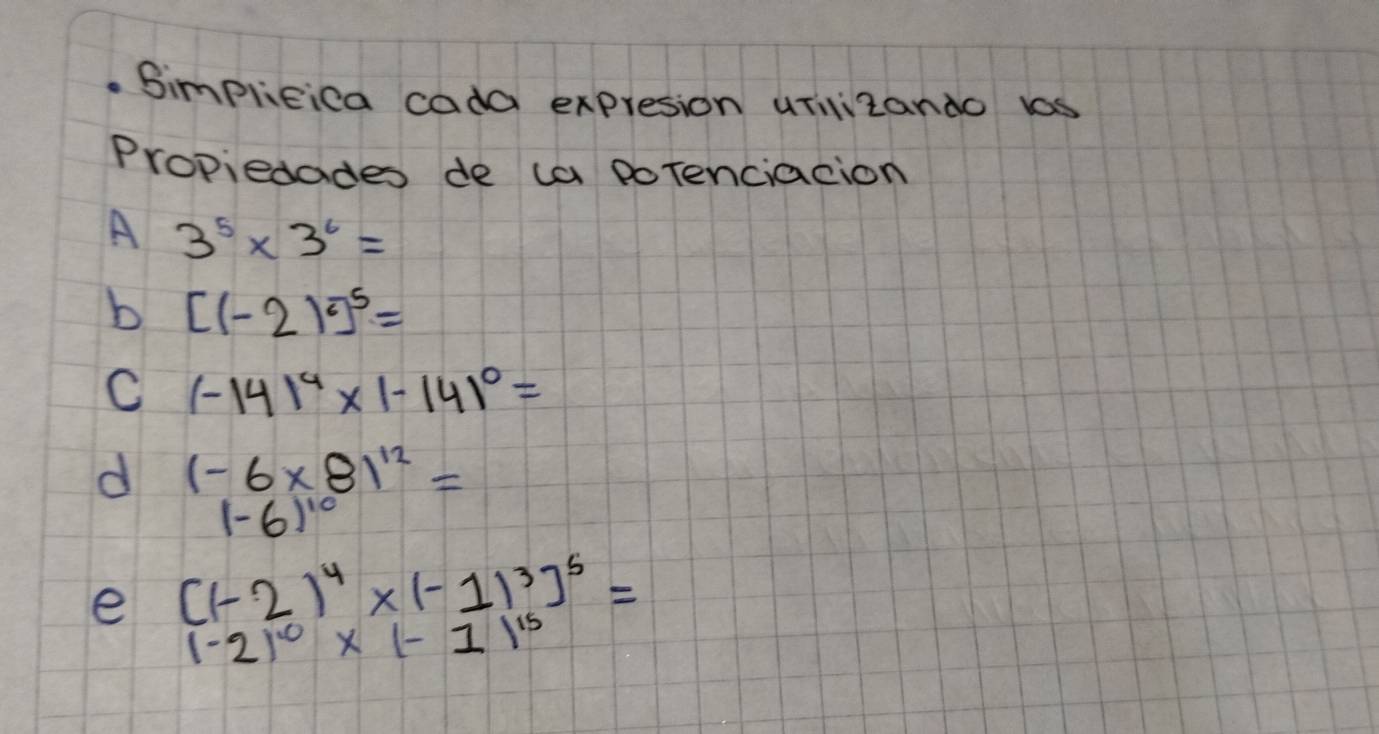 • Simplifica cada expresion utilizando las
Propiedades de la potenciacion
A 3⁵ × 3⁶ =
b [(-2)⁵]⁵ =
C (-14)⁴ × (-14)⁰ =
d (-6 × 8)¹² =
(-6)¹⁰
e [(-2)⁴ × (-1)³]⁵ =
(-2)¹⁰ × (-1)¹⁵